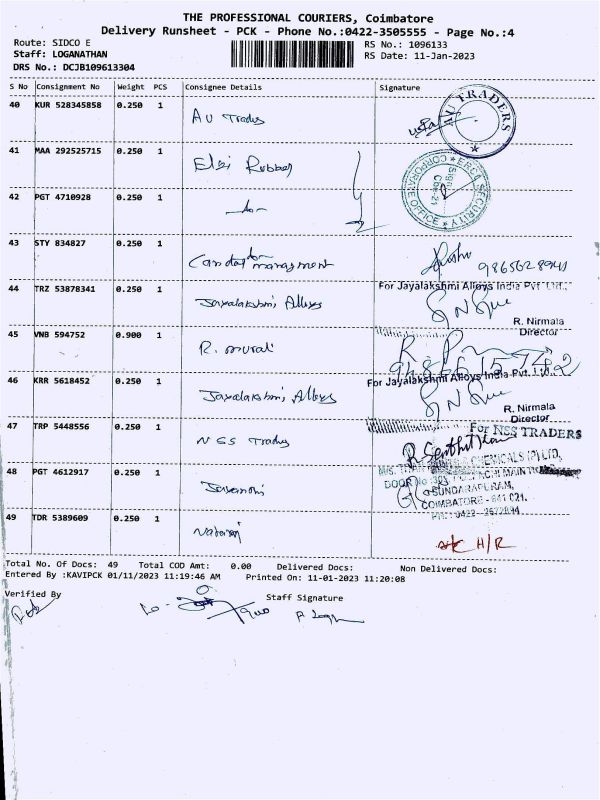 THE PROFESSIONAL COURIERS, Coimbatore
Delivery Runsheet - PCK - Phone No.:0422-3505555 - Page No.:4
Route: SIDCO E
RS No.: 1096133
Staff: LOGANATHAN
RS Date: 11-Jan-2023
DRS No.: DCJB109613304
S No Consignment No Weight PCS Consignee Details Signature
40 KUR 528345858 0.250 1 AU Traders
AU TRADERS
41 MAA 292525715 0.250 1 Elgi Rubber
SECURITY
CORPORATE OFFICE
42 PGT 4710928 0.250 1 -do-
43 STY 834827 0.250 1
44 TRZ 53878341 0.250 1 Jayalakshmi Alloys
For Jayalakshmi Alloys India Pvt. Ltd.,
R. Nirmala
Director
45 VNB 594752 0.900 1 R. Murali
46 KRR 5618452 0.250 1 Jayalakshmi Alloys
For Jayalakshmi Alloys India Pvt. Ltd.,
R. Nirmala
Director
47 TRP 5448556 0.250 1 NSS Traders
For NSS TRADERS
48 PGT 4612917 0.250 1
CHEMICALS (P) LTD,
DOOR No
MAIN
SUNDARAPURAM,
COIMBATORE - 641 021.
49 TDR 5389609 0.250 1 Nataraj
H/R
Total No. Of Docs: 49 Total COD Amt: 0.00 Delivered Docs: Non Delivered Docs:
Entered By :KAVIPCK 01/11/2023 11:19:46 AM Printed On: 11-01-2023 11:20:08
Verified By
Staff Signature